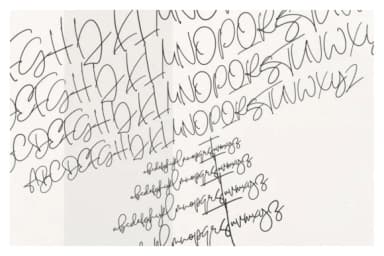 EFGHIJKLMNOPQRS
DEFGHIJKLMNOPQRSTUVWX
BCDEFGHIJKLMNOPQRSTUVWXY
ABCDEFGHIJKLMNOPQRSTUVWXYZ
abcdefghijklmnopqrstuvwxyz
abcdefghijklmnopqrstuvwxyz
abcdefghijklmnopqrstuvwxyz
mnopqrstuvwxyz